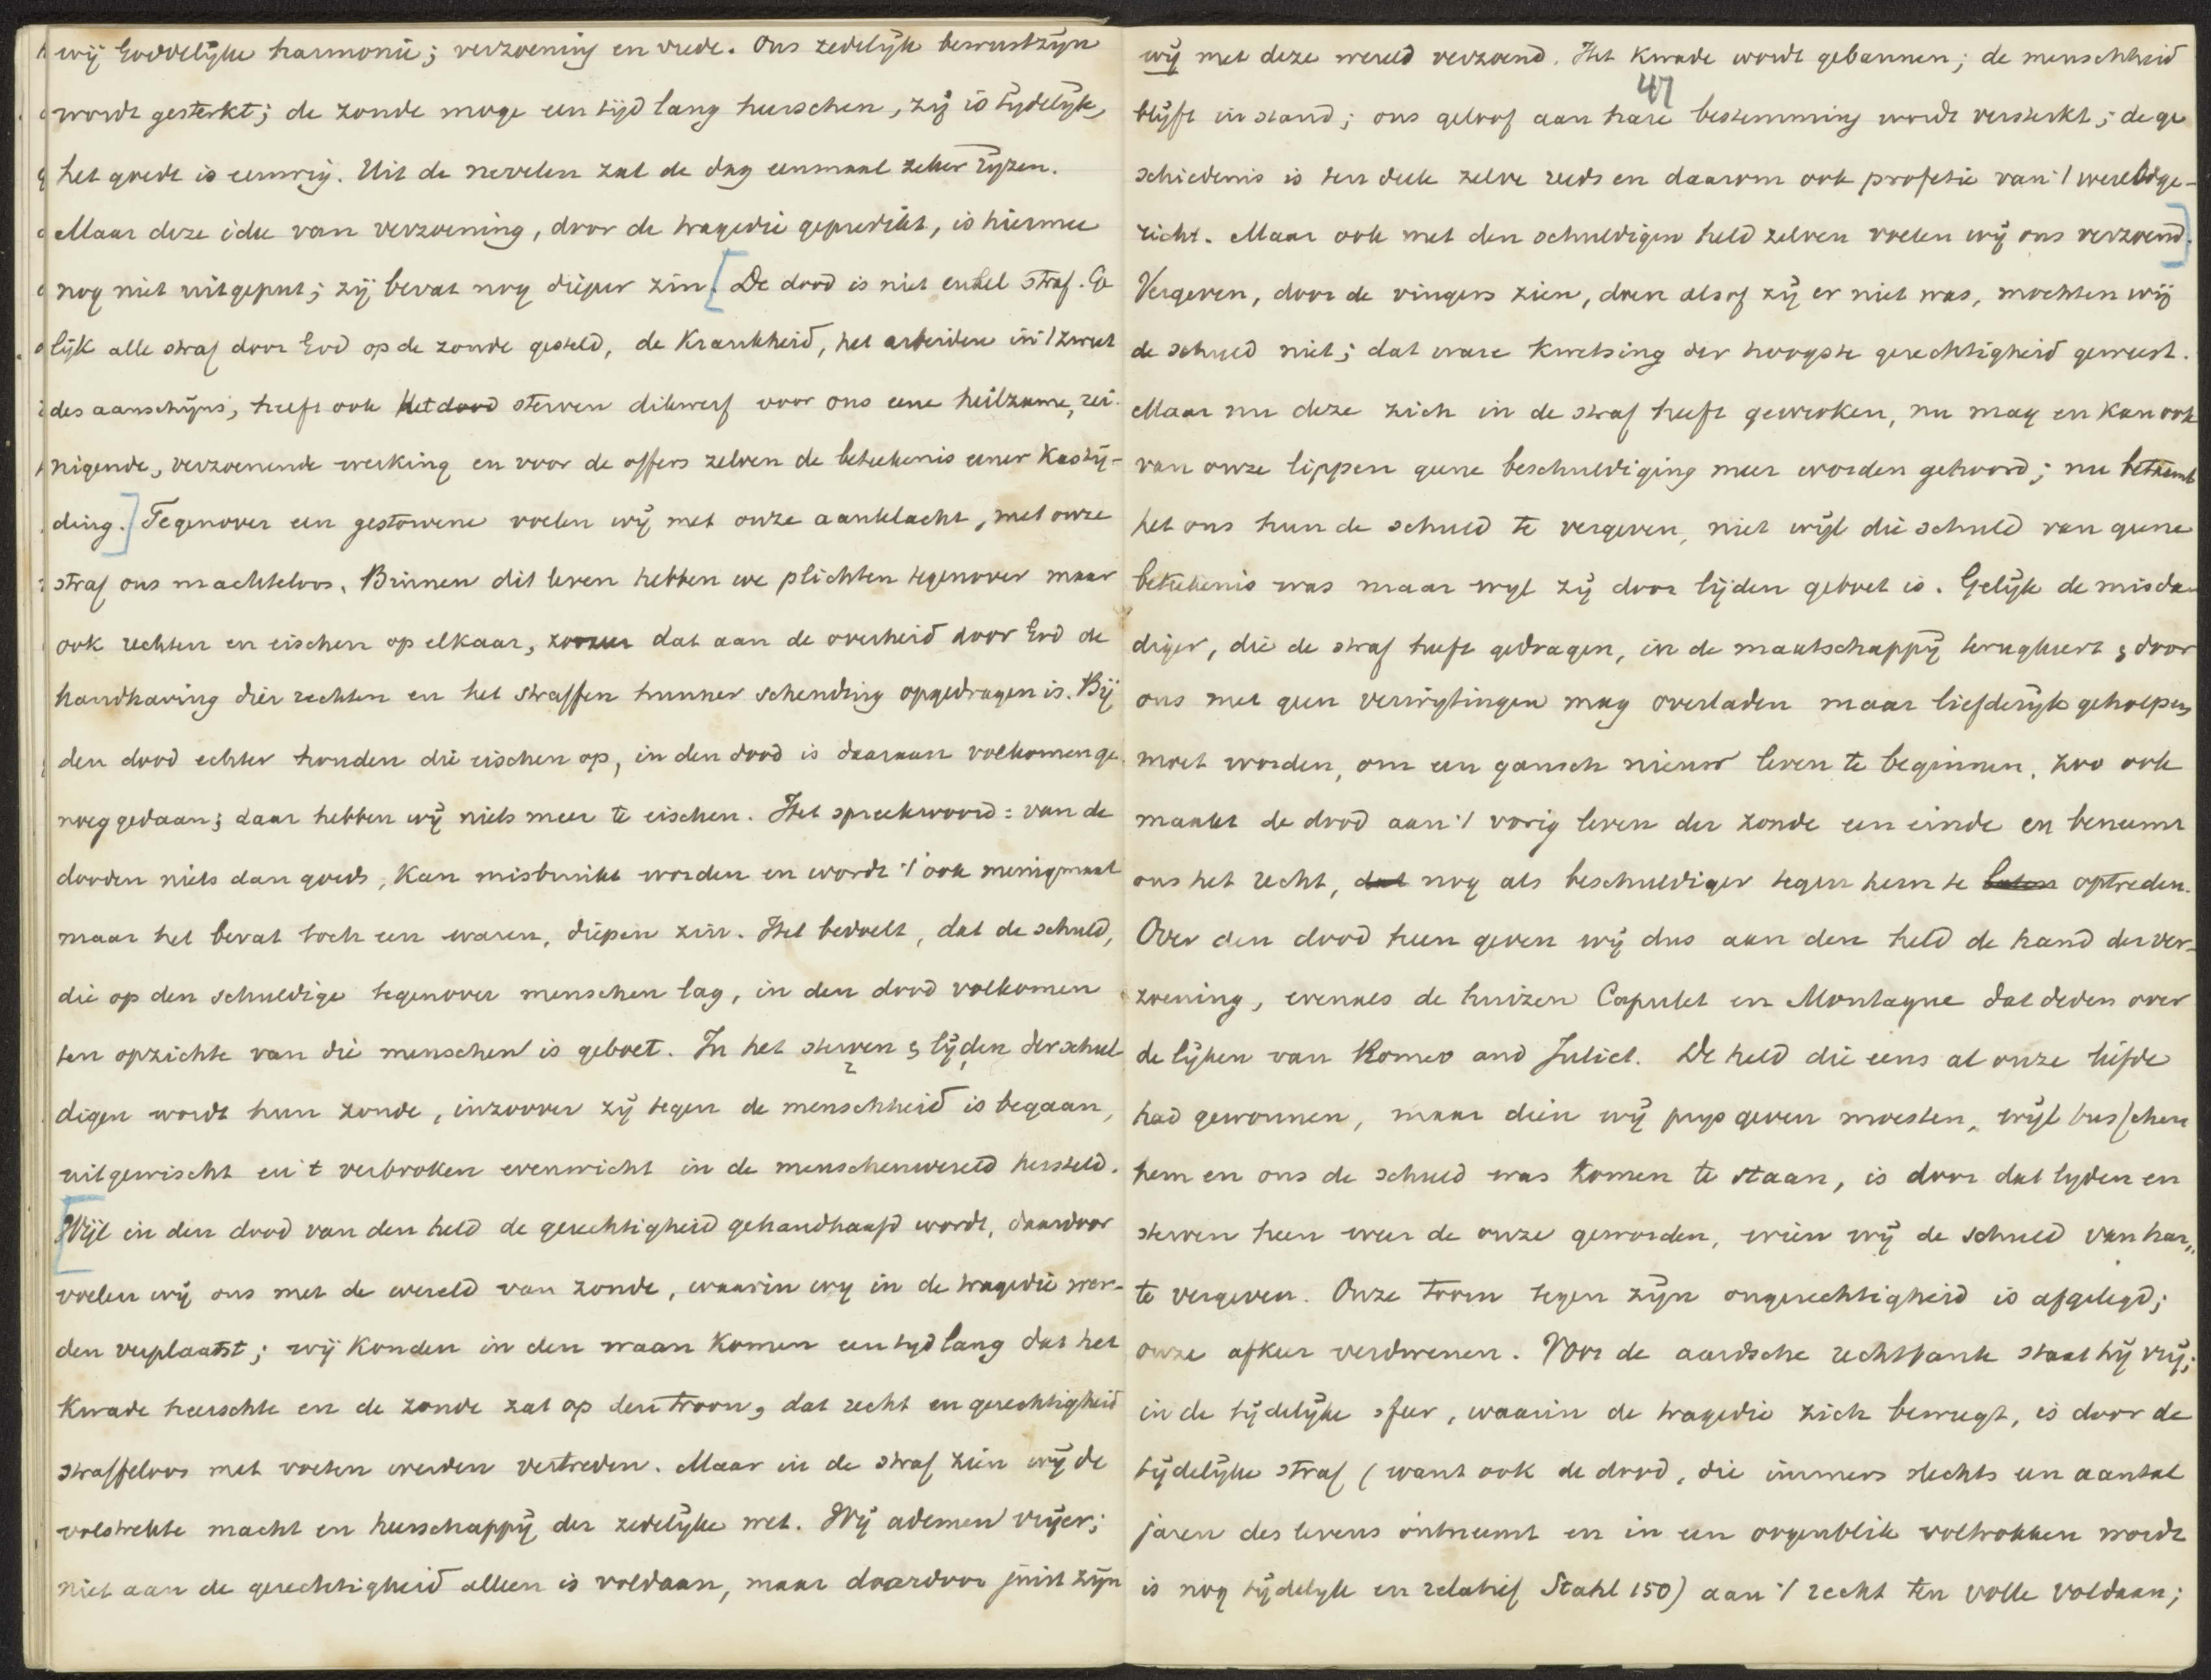 wij Goddelijke harmonie; verzoening en vrede. Ons zedelijk bewustzijn
wordt gesterkt; de zonde moge een tijd lang heerschen, zij is tijdelijk,
het goede is eeuwig. Uit de nevelen zal de dag eenmaal zeker rijzen.
Maar deze idee van verzoening, door de tragedie gepredikt, is hiermee
nog niet uitgeput; zij bevat nog dieper zin. [De dood is niet enkel straf. Ge
lijk alle straf door God op de zonde gesteld, de Krankheid, het arbeiden in 't zweet
des aanschijns, heeft ook Het dood sterven dikwerf voor ons eene heilzame, rei-
nigende, verzoenende werking en voor de offers zelven de beteekenis eener Kastij-
ding.] Tegenover een gestorvene voelen wij met onze aanklacht, met onze
straf ons machteloos. Binnen dit leven hebben we plichten tegenover maar
ook rechten en eischen op elkaar, zoozeer dat aan de overheid door God de
handhaving dier rechten en het straffen hunner schending opgedragen is. Bij
den dood echter houden die eischen op, in den dood is daaraan volkomen ge
noeg gedaan; daar hebben wij niets meer te eischen. Het spreekwoord: van de
dooden niets dan goeds, kan misbruikt worden en wordt 't ook menigmaal
maar het bevat toch een waren, diepen zin. Het bedoelt, dat de schuld,
die op den schuldige tegenover menschen lag, in den dood volkomen
ten opzichte van die menschen is geboet. In het sterven & lijden der schul
digen wordt hun zonde, inzoover zij tegen de menschheid is begaan,
uitgewischt en 't verbroken evenwicht in de menschenwereld hersteld.
[Wijl in den dood van den held de gerechtigheid gehandhaafd wordt, daardoor
voelen wij ons met de wereld van zonde, waarin wij in de tragedie wor-
den verplaatst; wij konden in den waan komen een tijd lang dat het
Kwade heerschte en de zonde zat op den troon, dat recht en gerechtigheid
straffeloos met voeten werden vertreden. Maar in de straf zien wij de
volstrekte macht en heerschappij der zedelijke wet. Wij ademen vrijer;
niet aan de gerechtigheid alleen is voldaan, maar daardoor juist zijn
47
wij met deze wereld verzoend. Het Kwade wordt gebannen; de menschheid
blijft in stand; ons geloof aan hare bestemming wordt versterkt; de ge
schiedenis is ten deele zelve reeds en daarom ook profetie van 't wereldge-
richt. Maar ook met den schuldigen held zelven voelen wij ons verzoend.]
Vergeven, door de vingers zien, doen alsof zij er niet was, mochten wij
de schuld niet; dat ware Kwetsing der hoogste gerechtigheid geweest.
Maar nu deze zich in de straf heeft gewroken, nu mag en kan ook
van onze lippen geene beschuldiging meer worden gehoord; nu betaamt
het ons hun de schuld te vergeven, niet wijl die schuld van geene
beteekenis was maar wijl zij door lijden geboet is. Gelijk de misda-
diger, die de straf heeft gedragen, in de maatschappij terugkeert & door
ons met geen verwijtingen mag overladen maar liefderijk geholpen
moet worden, om een gansch nieuw leven te beginnen, zoo ook
maakt de dood aan 't vorig leven der zonde een einde en beneemt
ons het recht, dat nog als beschuldiger tegen hem te laten optreden.
Over den dood heen geven wij dus aan den held de hand der ver-
zoening, evenals de huizen Capulet en Montague dat deden over
de lijken van Romeo and Juliet. De held die eens al onze liefde
had gewonnen, maar dien wij prijs geven moesten, wijl tusschen
hem en ons de schuld was komen te staan, is door dat lijden en
sterven heen weer de onze geworden, wien wij de schuld van har„
te vergeven. Onze toorn tegen zijn ongerechtigheid is afgelegd;
onze afkeer verdwenen. Voor de aardsche rechtbank staat hij vrij;
in de tijdelijke sfeer, waarin de tragedie zich beweegt, is door de
tijdelijke straf (want ook de dood, die immers slechts een aantal
jaren des levens ontneemt en in een oogenblik voltrokken wordt
is nog tijdelijk en relatief Stahl 150) aan 't recht ten volle voldaan;